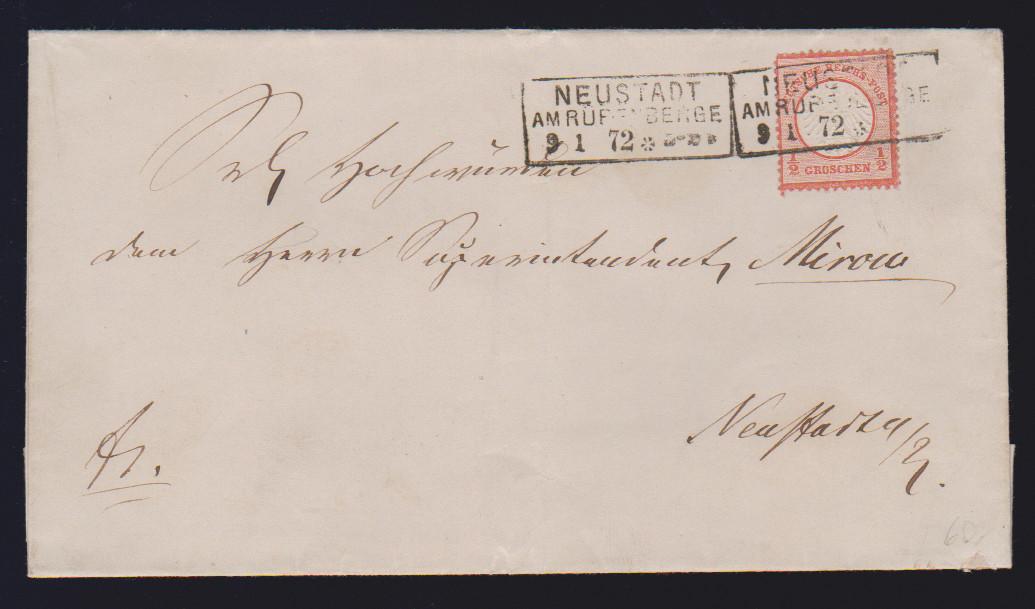 NEUSTADT
AM RÜBENBERGE
9 1 72 *
NEUS
AM RÜB GE
9 1 72 *
REICHS-POST
½ GROSCHEN ½
Hochwürden
dem Herrn Superintendent, Mirow
Neustadt a/R.
fr.
60